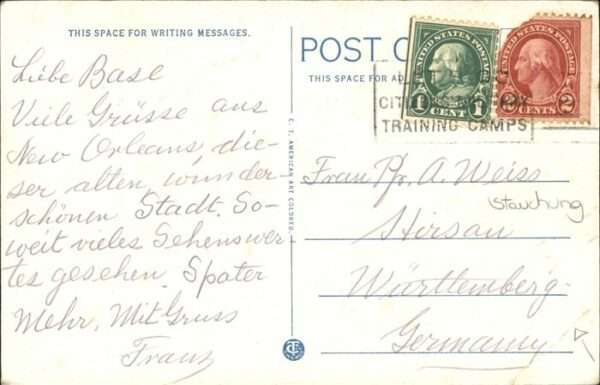 THIS SPACE FOR WRITING MESSAGES.
Liebe Base
Viele Grüsse aus
New Orleans, die-
ser alten, wunder-
schönen Stadt. So-
weit vieles Sehenswer-
tes gesehen. Später
Mehr. Mit Gruss
Franz
C. T. AMERICAN ART COLORED
POST C
THIS SPACE FOR AD
UNITED STATES POSTAGE
1 CENT 1
UNITED STATES POSTAGE
2 CENTS 2
CIT
TRAINING CAMPS
Frau Pfr. A. Weiss
Stauchung
Hirsau
Württemberg.
Germany